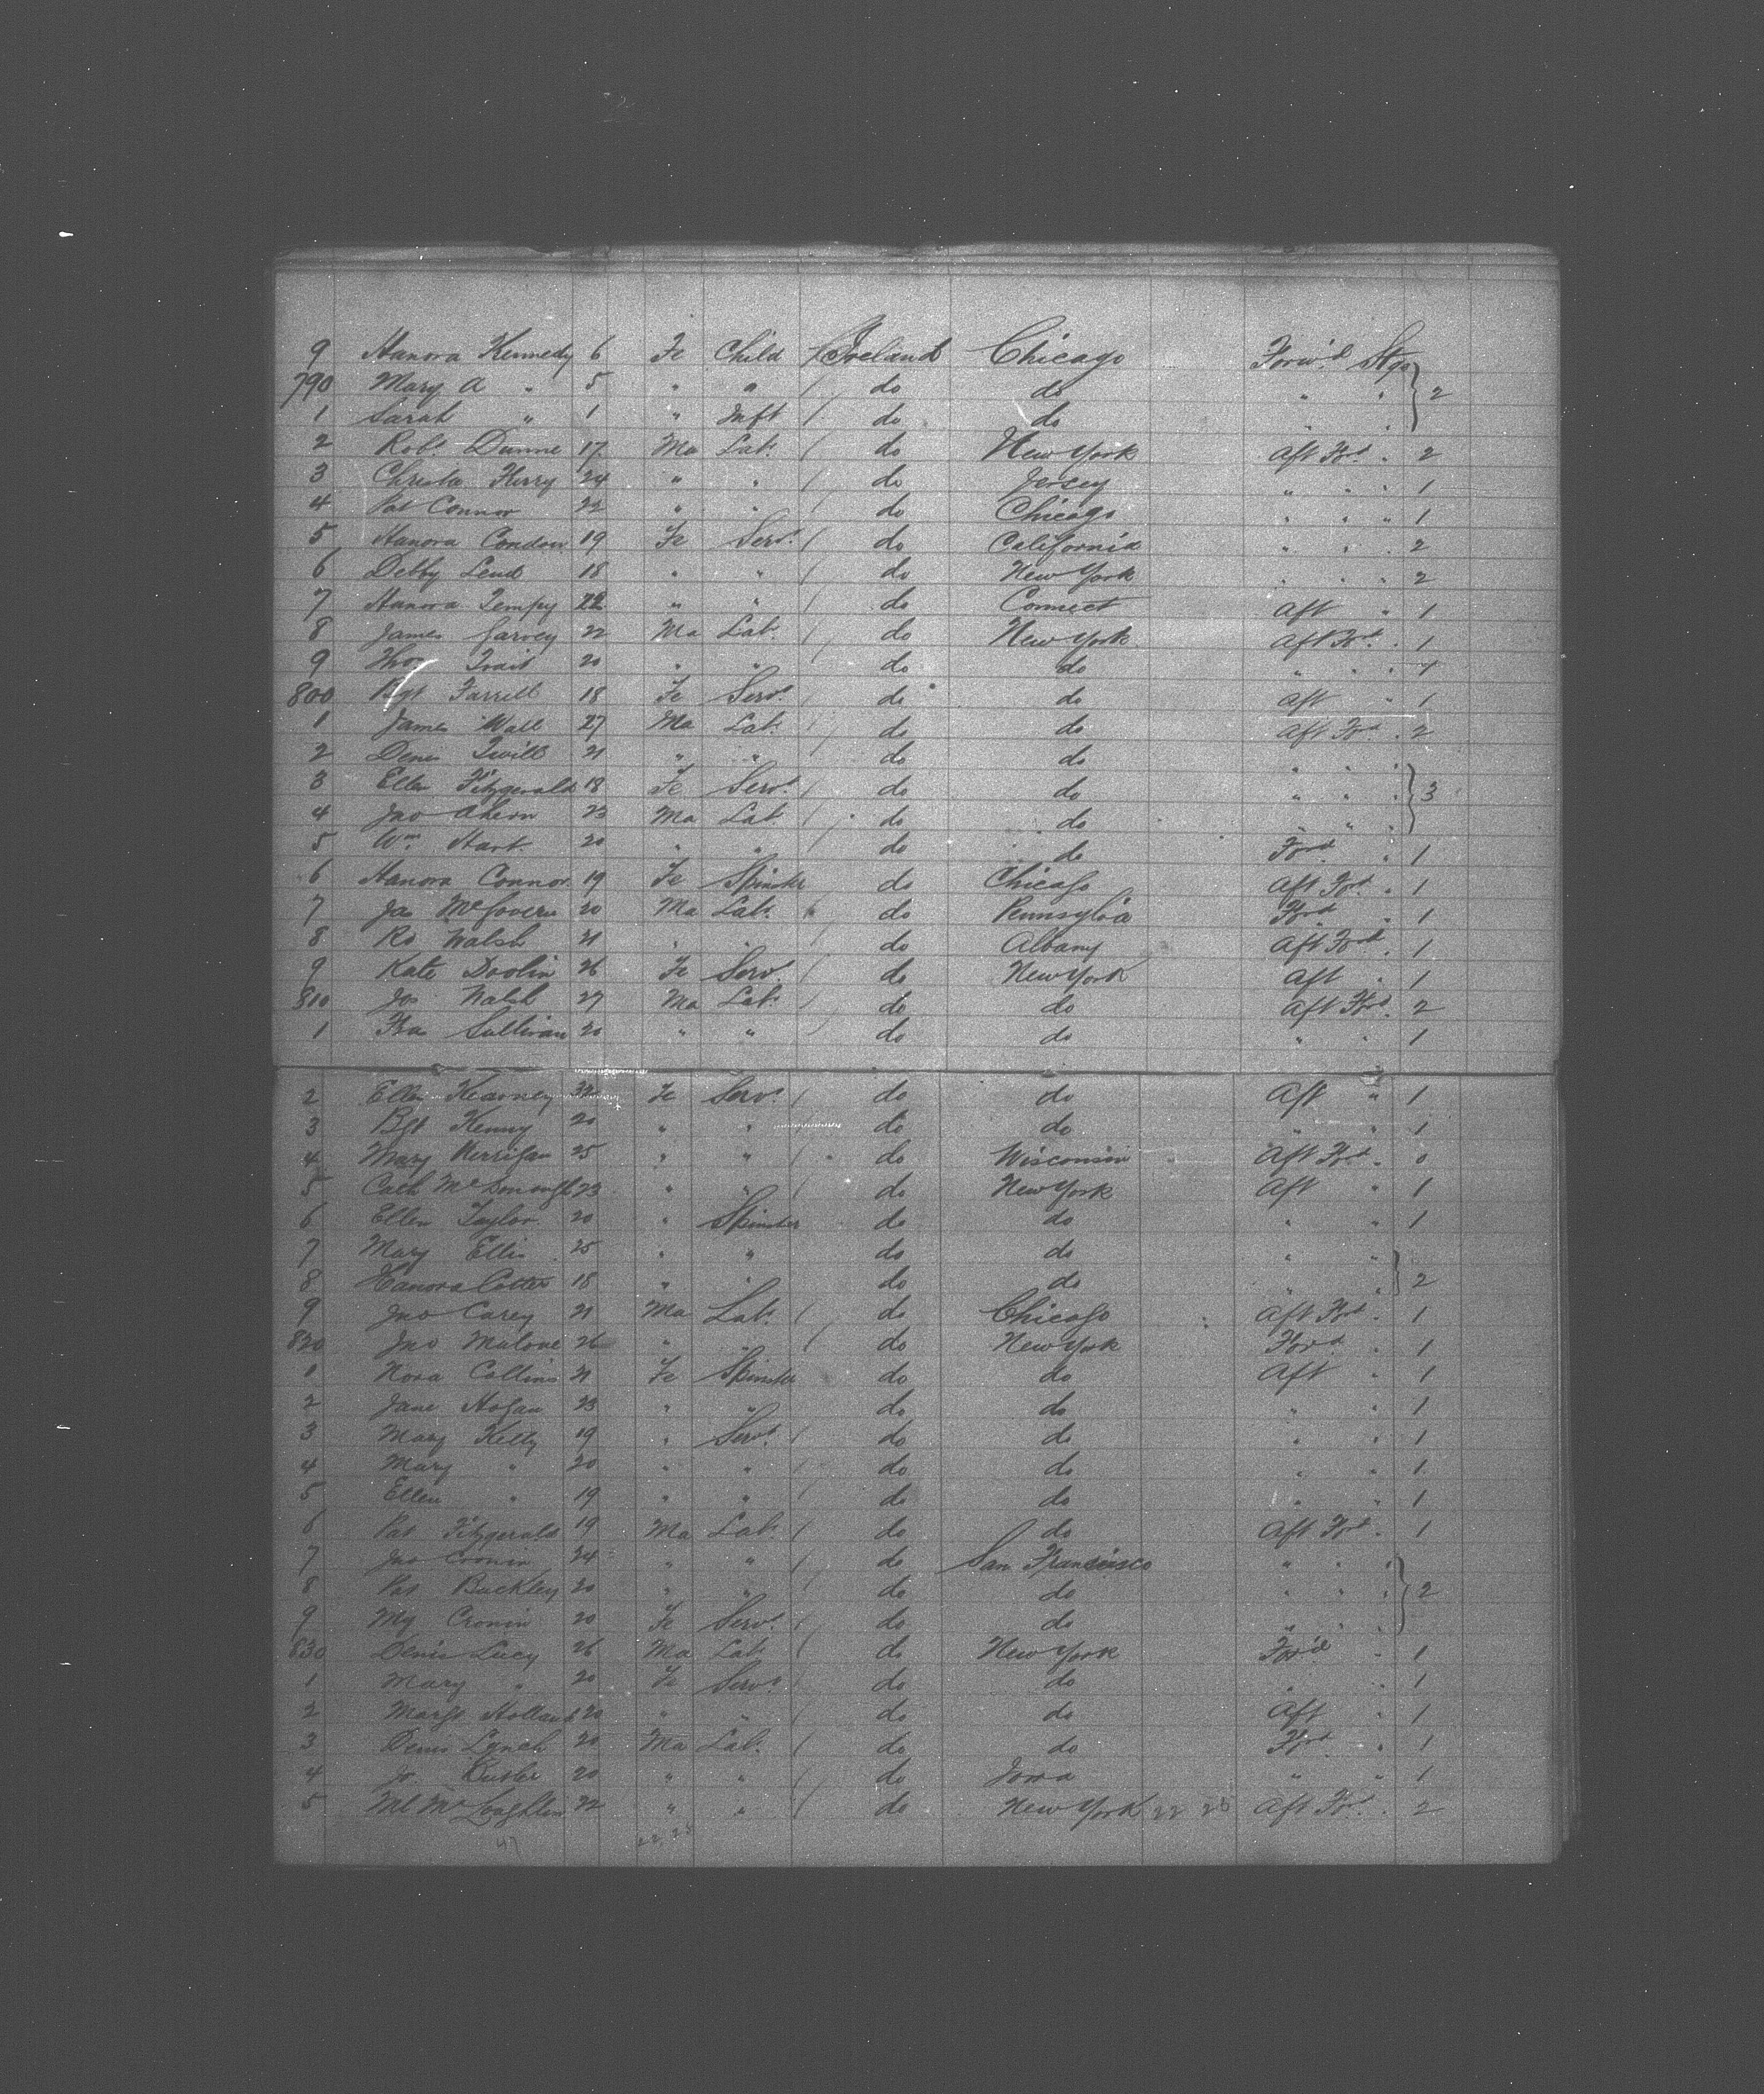 9 Hanora Kennedy 6 Fe Child / Ireland Chicago Forw'd Stge
790 Mary A " 5 " " / do do " " } 2
1 Sarah " 1 " Inft / do do " "
2 Robt Dunne 17 Ma Labr / do New York Aft Ford " 2
3 Christr Furry 24 " " / do Jersey " " " 1
4 Pat Connor 22 " " / do Chicago " " " 1
5 Hanora Condon 19 Fe Servt / do California " " " 2
6 Debby 18 " " / do New York " " " 2
7 Hanora Tempy 22 " " / do Connect Aft " 1
8 James Garvey 22 Ma Labr / do New York Aft Ford " 1
9 Thos 20 " " / do do " " " 1
800 Bgt Farrell 18 Fe Servt / do do Aft " 1
1 James Wall 27 Ma Labr / do do Aft Ford " 2
2 Denis Twill 21 " " / do do " " "
3 Ellen Fitzgerald 18 Fe Servt / do do " " " } 3
4 Jno Ahern 23 Ma Labr / do do " " "
5 Wm Hart 20 " " / do do Ford " 1
6 Hanora Connor 19 Fe Spinster do Chicago Aft Ford " 1
7 Jas McGovern 20 Ma Labr / do Pennsylva Ford " 1
8 Rd Walsh 21 " " / do Albany Aft Ford " 1
9 Kate Doolin 26 Fe Servt / do New York Aft " 1
810 Jos Walsh 27 Ma Labr / do do Aft Ford " 2
1 Fra Sullivan 20 " " / do do " " 1
2 Ellen Kearney Fe Servt / do do Aft " 1
3 Bgt Kenny 20 " " do do " " 1
4 Mary Kerrigan 25 " " / do Wisconsin Aft Ford " 0
5 Cath McDonough 23 " " / do New York Aft " 1
6 Ellen Taylor 20 " Spinster do do " " 1
7 Mary Ellis 25 " " do do " "
8 Hanora Cotter 18 " " do do " " } 2
9 Jno Carey 21 Ma Labr / do Chicago Aft Ford " 1
820 Jno Malone 26 " " / do New York Ford " 1
1 Nora Collins 21 Fe Spinster do do Aft " 1
2 Jane Hogan 23 " " do do " " 1
3 Mary Kelly 19 " Servt / do do " " 1
4 Mary " 20 " " / do do " " 1
5 Ellen " 19 " " / do do " " 1
6 Pat Fitzgerald 19 Ma Labr / do do Aft Ford " 1
7 Jno Cronin 24 " " / do San Francisco " " "
8 Pat Buckley 20 " " / do do " " " } 2
9 Mg Cronin 20 Fe Servt / do do " " "
830 Denis Lucy 26 Ma Labr / do New York For'd " 1
1 Mary " 20 Fe Servt / do do " " 1
2 Margt Holland 20 " " / do do Aft " 1
3 Denis Lynch 20 Ma Labr / do do Ford " 1
4 Jo Butler 20 " " / do Iowa " " 1
5 Ml McLoghlin 22 " " / do New York 22 25 Aft Ford " 2
47 22 25